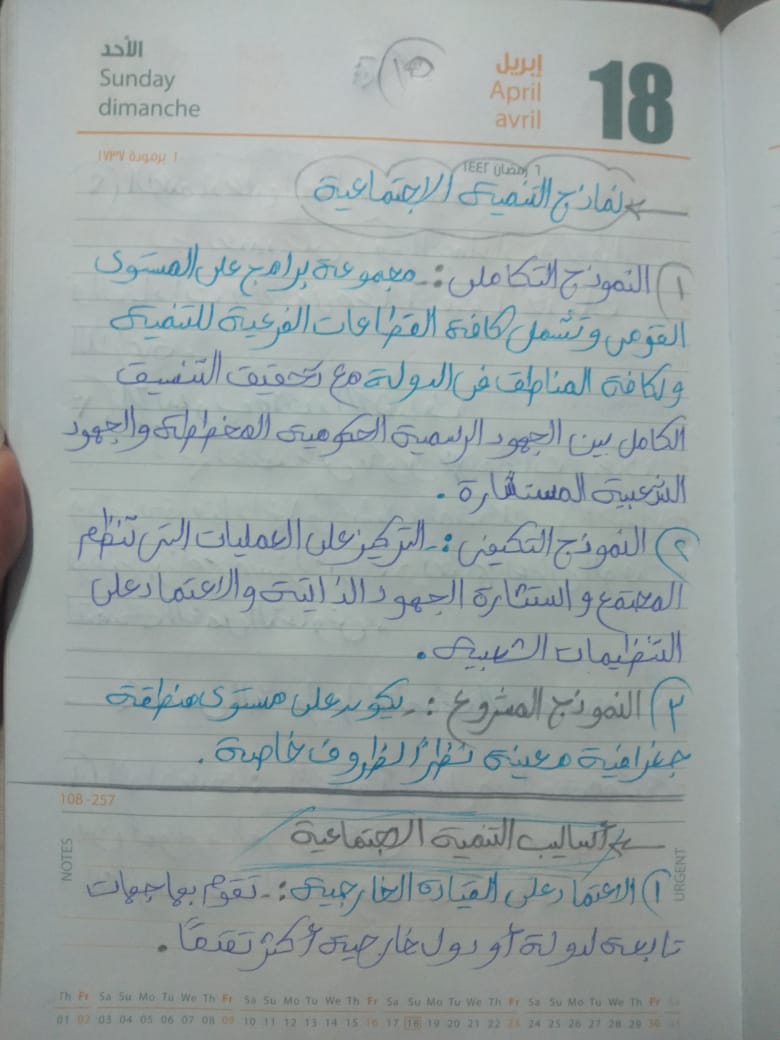 الأحد
Sunday
dimanche
إبريل
April
avril
18
١ برمودة ١٧٣٧
٦ رمضان ١٤٤٢
نماذج التنمية الاجتماعية
١) النموذج التكاملى :- مجموعة برامج على المستوى
القومى وتشمل كافة القطاعات الفرعية للتنمية
ولكافة المناطق فى الدولة مع تحقيق التنسيق
الكامل بين الجهود الرسمية الحكومية المخططة والجهود
الشعبية المستشارة .
٢) النموذج التكيفى :- التركيز على العمليات التى تنظم
المجتمع واستثارة الجهود الذاتية والاعتماد على
التنظيمات الشعبية .
٣) النموذج المشروع :- يكون على مستوى منطقة
جغرافية معينة نظراً لظروف خاصة .
108-257
أساليب التنمية الاجتماعية
NOTES
URGENT
١) الاعتماد على القيادة الخارجية :- تقوم بها جهات
تابعة لدولة أو دول خارجية أكثر تقدماً .
Th Fr Sa Su Mo Tu We Th Fr Sa Su Mo Tu We Th Fr Sa Su Mo Tu We Th Fr Sa Su Mo Tu We Th Fr Sa
01 02 03 04 05 06 07 08 09 10 11 12 13 14 15 16 17 18 19 20 21 22 23 24 25 26 27 28 29 30 01